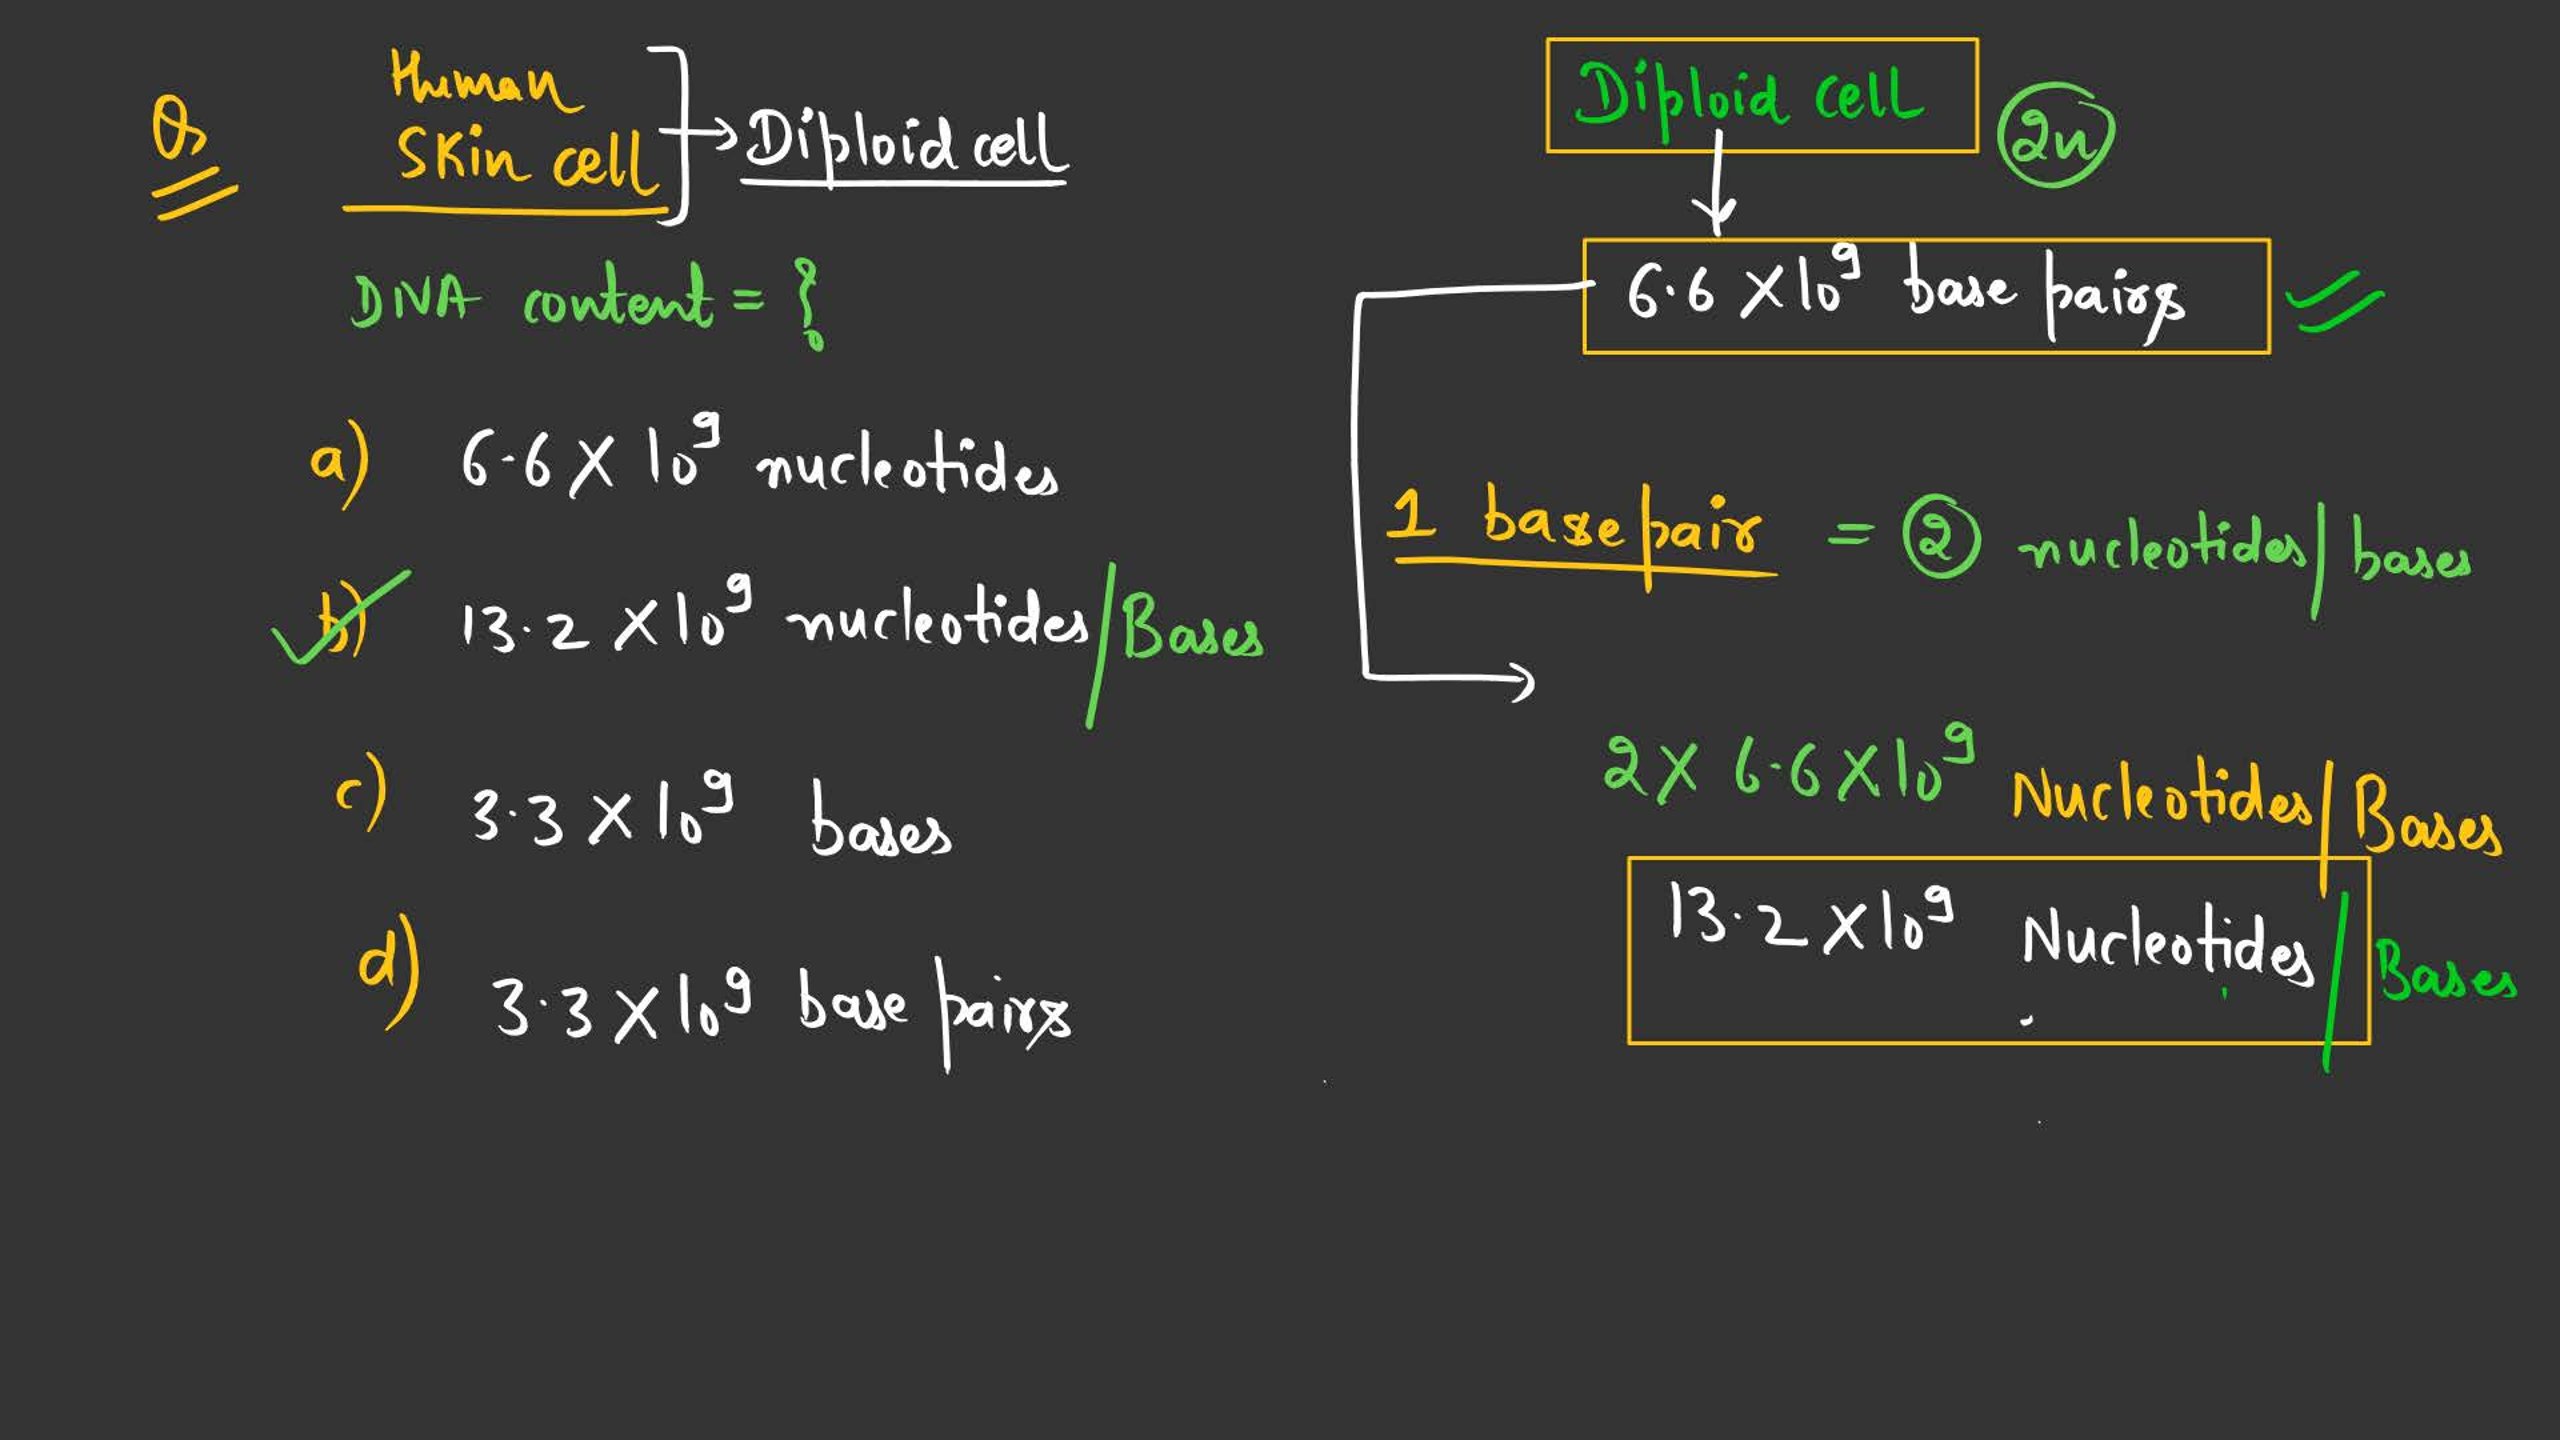 Q
Human
Skin cell → Diploid cell
DNA content = ?
a) 6.6 X 10⁹ nucleotides
b) 13.2 X 10⁹ nucleotides / Bases
c) 3.3 X 10⁹ bases
d) 3.3 X 10⁹ base pairs
Diploid cell 2n
6.6 X 10⁹ base pairs
1 base pair = 2 nucleotides / bases
2 X 6.6 X 10⁹ Nucleotides / Bases
13.2 X 10⁹ Nucleotides / Bases